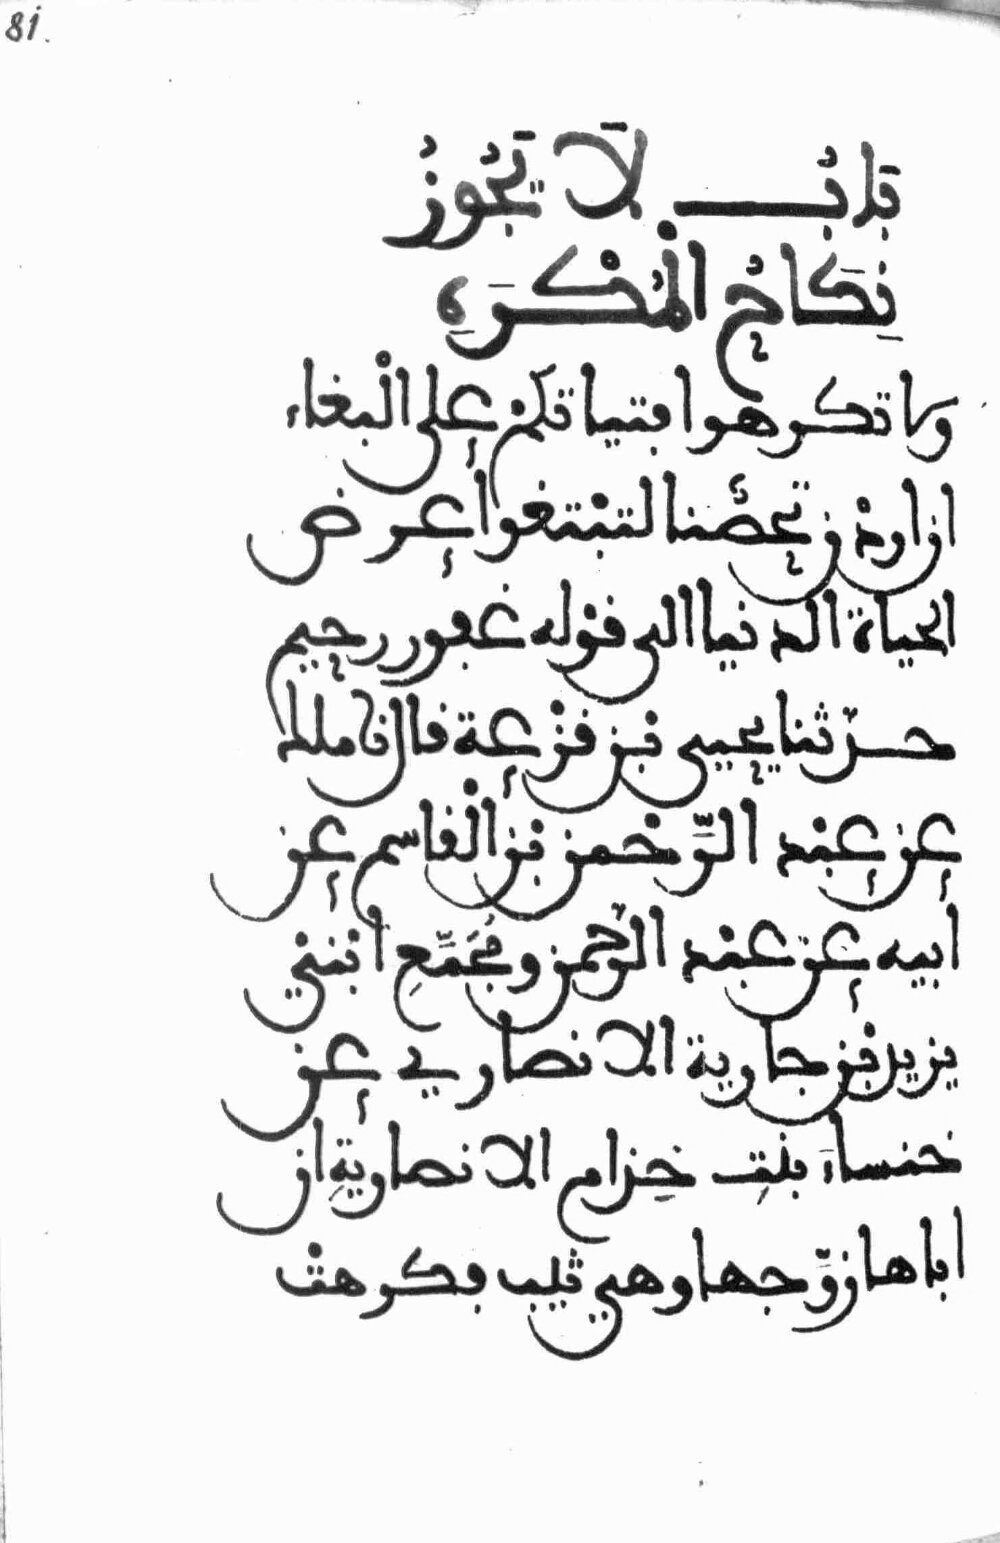 81.
بَابٌ لَا يَجُوزُ
نِكَاحُ الْمُكْرَهِ
ولا تكرهوا فتياتكم على الْبغاء
ان اردْن تحصُّنا لتبْتغوا عرض
الحياة الدنيا الى قوْله غفور رحيم
حدّثنا يحيى بن قزْعة قال نا ملك
عن عبْد الرَّحْمن بْن الْقاسم عن
ابيه عن عبْد الرّحْمن ومُجَمِّع ابْنيْ
يزيد بْن جارية الانصاري عن
خنساءَ بنْتِ خِزام الانصاريةِ ان
اباها زوَّجها وهي ثيّب فكرهتْ